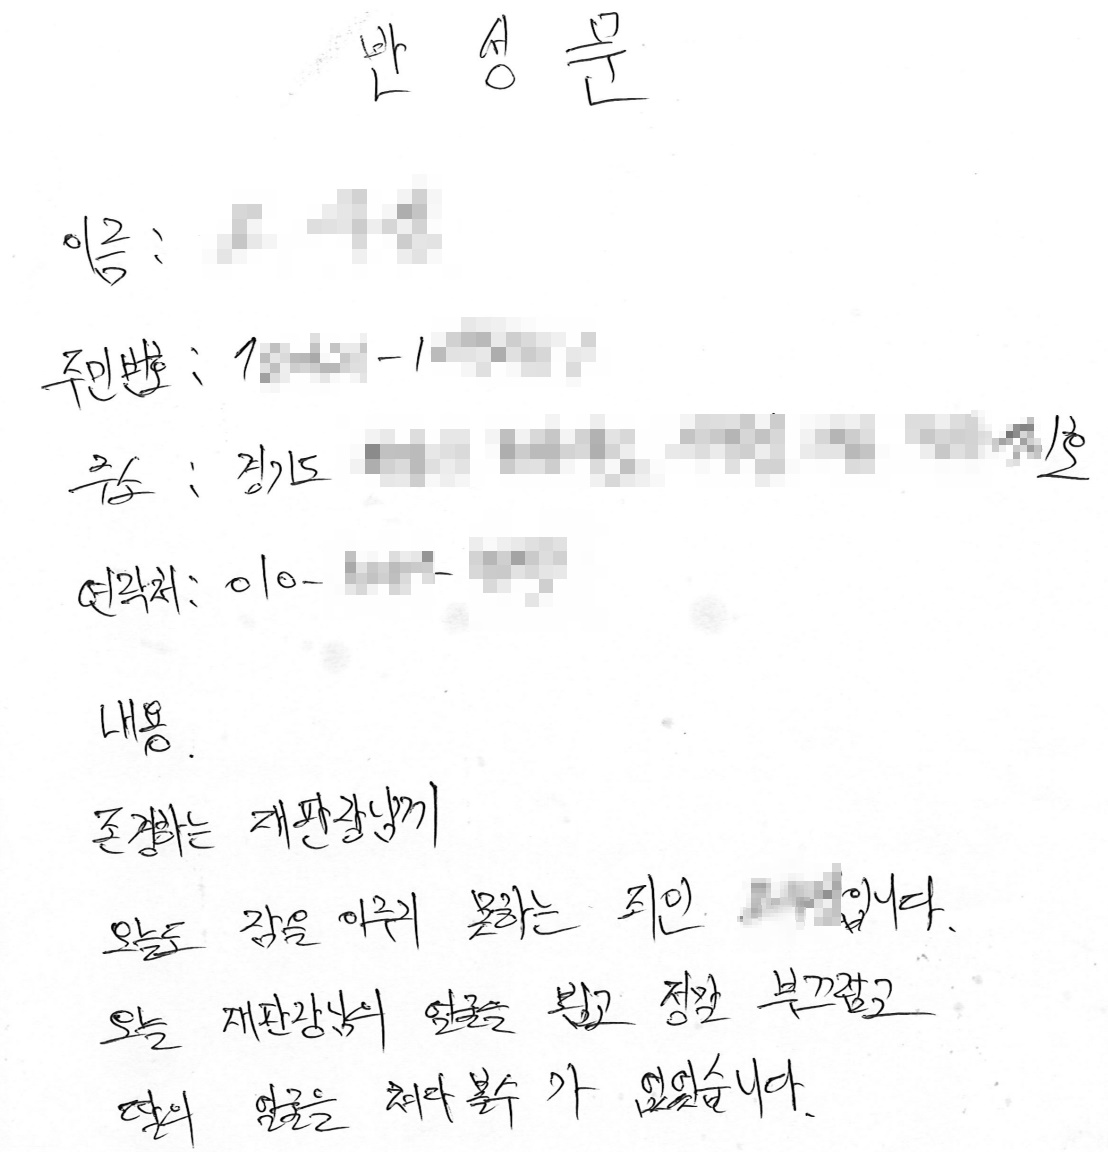 반 성 문
이름 :
주민번호 : 1 - 1
주소 : 경기도 1호
연락처 : 010- -
내용.
존경하는 재판장님께
오늘도 잠을 이루지 못하는 죄인 입니다.
오늘 재판장님의 얼굴을 뵙고 정말 부끄럽고
딸의 얼굴을 쳐다 볼수 가 없었습니다.